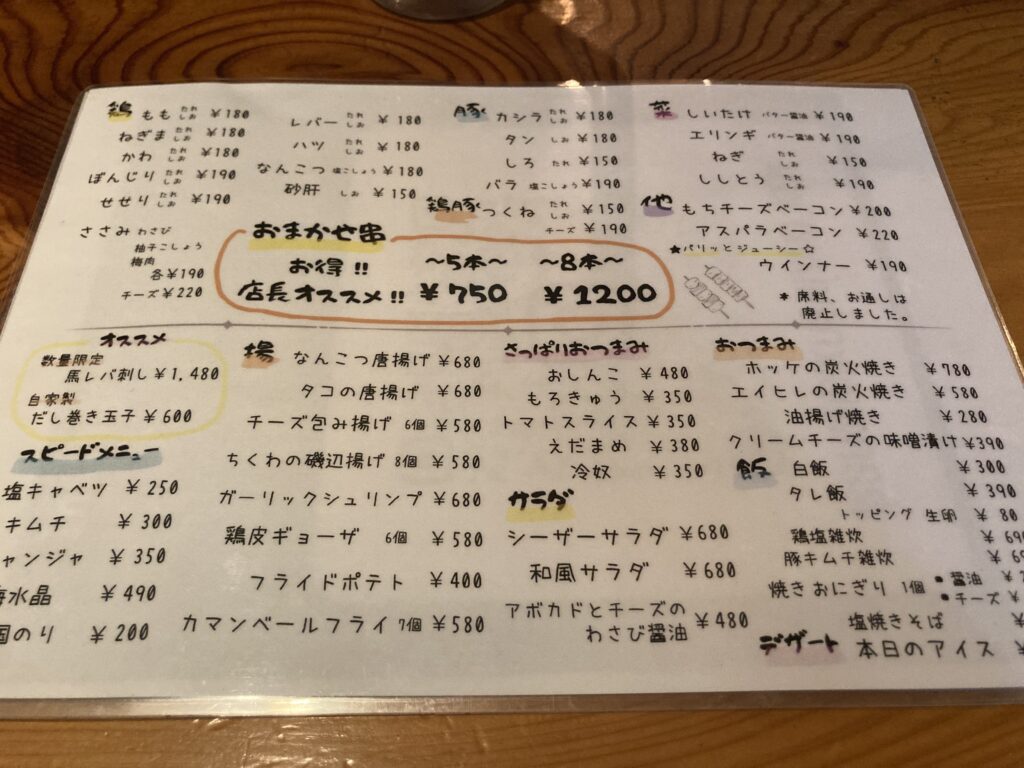 鶏 もも たれ しお ¥180
ねぎま たれ しお ¥180
かわ たれ しお ¥180
ぼんじり たれ しお ¥190
せせり たれ しお ¥190
ささみ わさび
柚子こしょう
梅肉
各¥190
チーズ ¥220
レバー たれ しお ¥180
ハツ たれ しお ¥180
なんこつ 塩こしょう ¥180
砂肝 しお ¥150
豚 カシラ たれ しお ¥180
タン しお ¥180
しろ たれ ¥150
バラ 塩こしょう ¥190
鶏豚 つくね たれ しお ¥150
チーズ ¥190
菜 しいたけ バター醤油 ¥190
エリンギ バター醤油 ¥190
ねぎ たれ しお ¥150
ししとう たれ しお ¥190
他 もちチーズベーコン ¥200
アスパラベーコン ¥220
★パリッとジューシー☆
ウインナー ¥190
* 席料、お通しは
廃止しました。
おまかせ串
お得!! 〜5本〜 〜8本〜
店長オススメ!! ¥750 ¥1200
オススメ
数量限定
馬レバ刺し ¥1,480
自家製
だし巻き玉子 ¥600
スピードメニュー
塩キャベツ ¥250
キムチ ¥300
ャンジャ ¥350
水晶 ¥490
のり ¥200
揚 なんこつ唐揚げ ¥680
タコの唐揚げ ¥680
チーズ包み揚げ 6個 ¥580
ちくわの磯辺揚げ 8個 ¥580
ガーリックシュリンプ ¥680
鶏皮ギョーザ 6個 ¥580
フライドポテト ¥400
カマンベールフライ 7個 ¥580
さっぱりおつまみ
おしんこ ¥480
もろきゅう ¥350
トマトスライス ¥350
えだまめ ¥380
冷奴 ¥350
サラダ
シーザーサラダ ¥680
和風サラダ ¥680
アボカドとチーズの
わさび醤油 ¥480
おつまみ
ホッケの炭火焼き ¥780
エイヒレの炭火焼き ¥580
油揚げ焼き ¥280
クリームチーズの味噌漬け ¥390
飯 白飯 ¥300
タレ飯 ¥390
トッピング 生卵 ¥80
鶏塩雑炊 ¥69
豚キムチ雑炊 ¥6
焼きおにぎり 1個 ●醤油 ¥
●チーズ ¥
塩焼きそば ¥
デザート 本日のアイス ¥